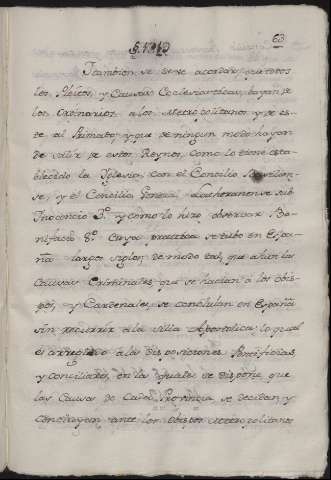 63
Tambien se sirve acordar, que todos
los Pleitos, y Causas Ecclesiasticas, vayan de
los Ordinarios a los Metropolitanos y de es-
te al Primado, y que de ningun modo hayan
de salir de estos Reynos, como lo tiene esta-
blecido la Yglesia, con el Concilio
se, y el Concilio General Lateranense sub
Inocencio 3º y como lo hizo observar Bo-
nifacio 8º cuya practica se tubo en Espa-
ña largos siglos, de modo tal, que aun las
Causas Criminales, que se hacian a los Obis-
pos, y Cardenales, se concluian en España
sin recurrir a la Silla Apostolica, lo qual
es arreglado a las disposiciones Pontificias,
y conciliares, en las quales se dispone que
las Causas de cada Provincia, se decidan y
concluyan ante los Obispos Metropolitanos